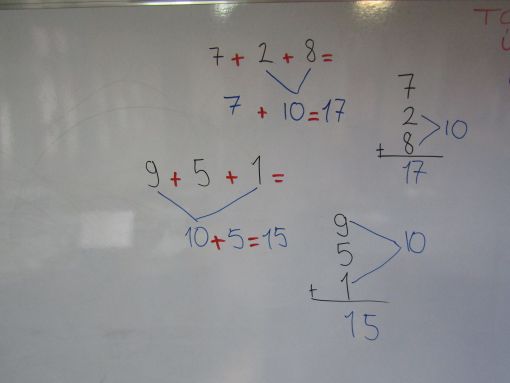 7 + 2 + 8 =
7 + 10 = 17
7
2
8
+
10
17
9 + 5 + 1 =
10 + 5 = 15
9
5
1
+
10
15